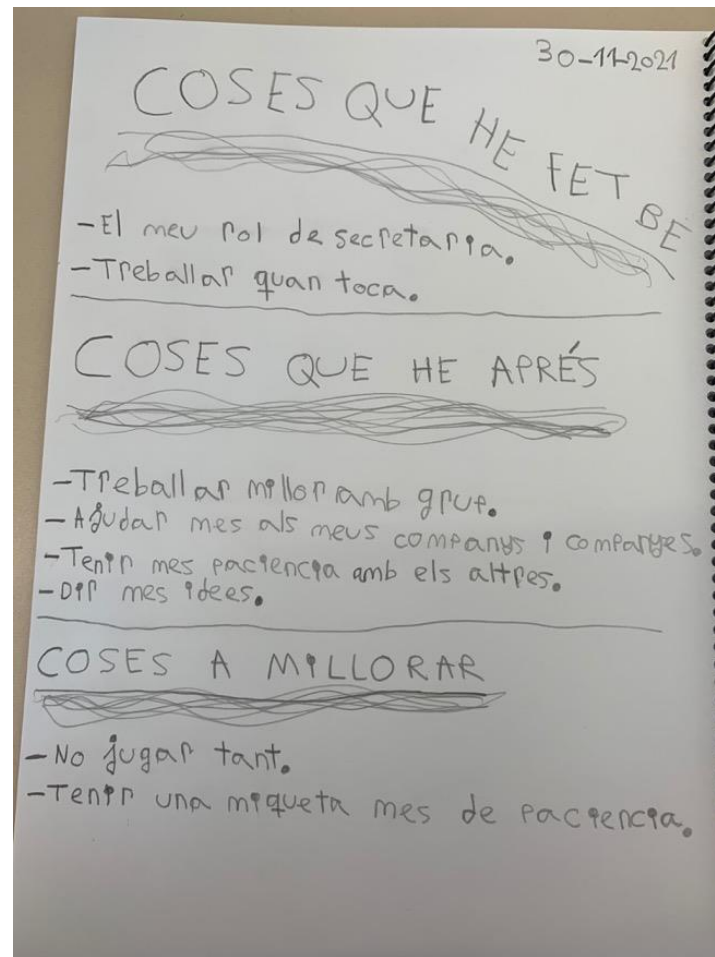 30-11-2021
COSES QUE HE FET BÉ
-El meu rol de secretaria.
-Treballar quan toca.
COSES QUE HE APRÉS
-Treballar millor amb grup.
-Ajudar mes als meus companys i companyes.
-Tenir mes paciencia amb els altres.
-Dir mes idees.
COSES A MILLORAR
-No jugar tant.
-Tenir una miqueta mes de paciencia.